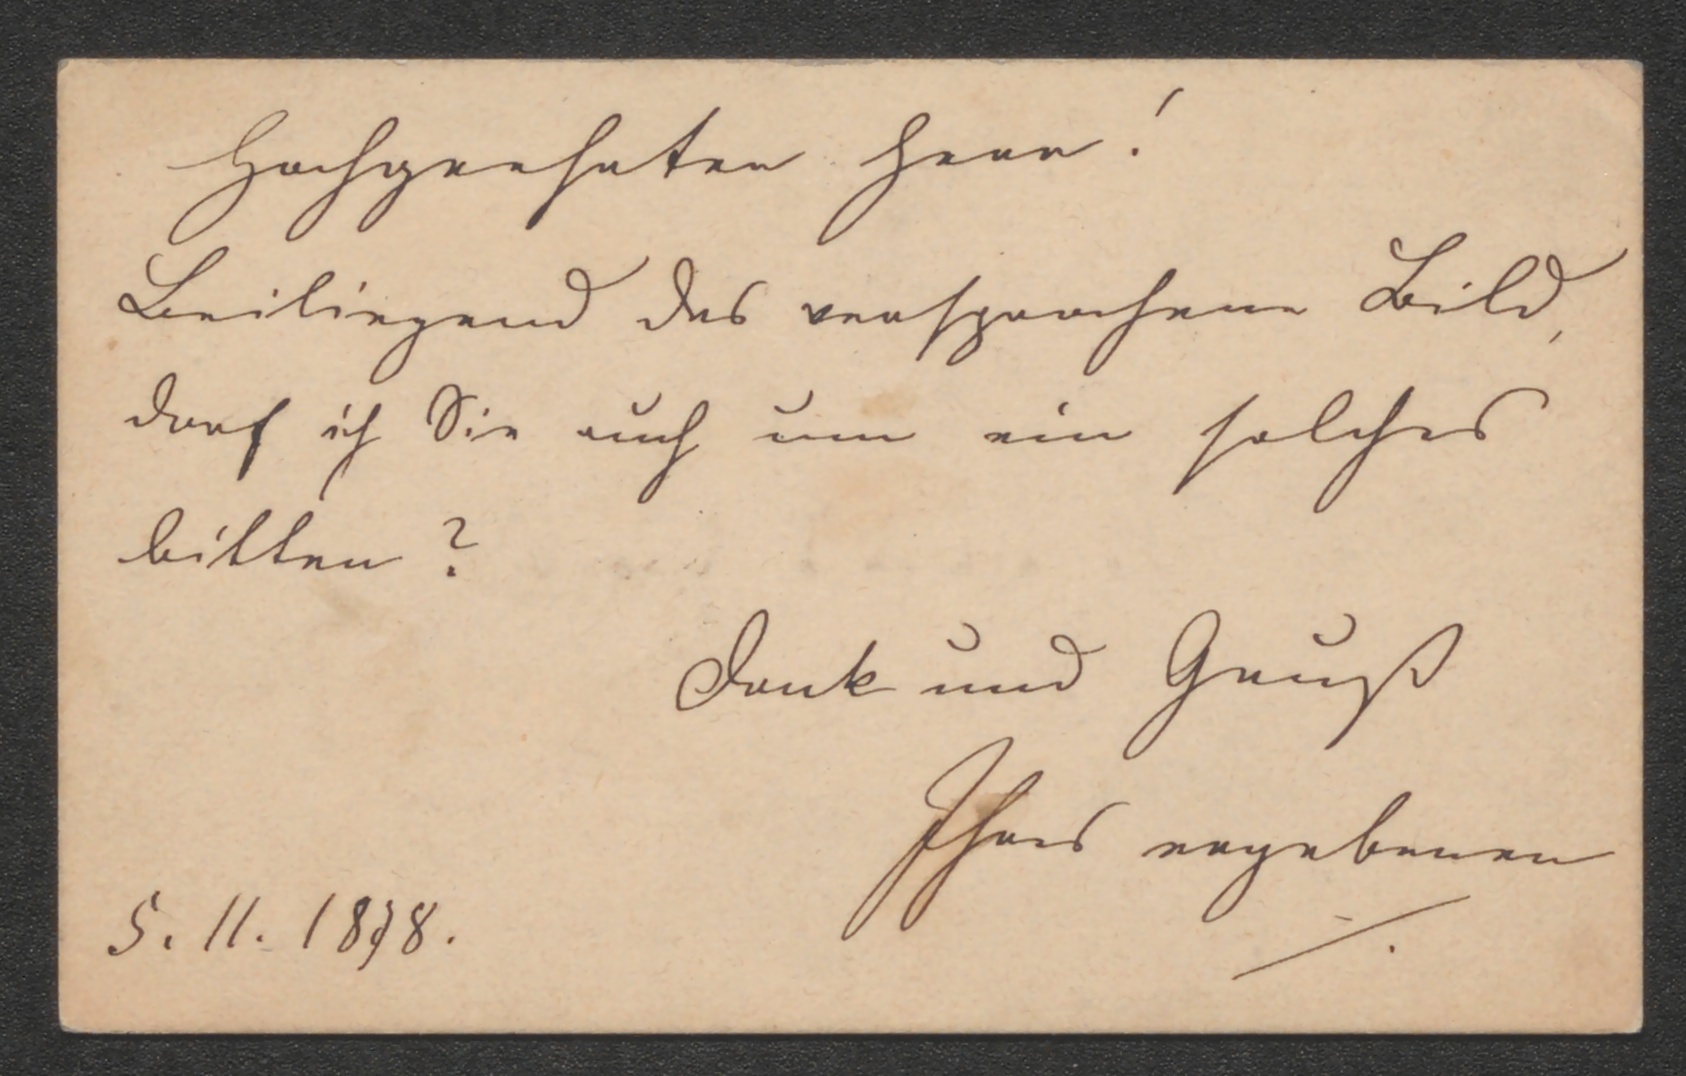 Hochgeehrter Herr!
Beiliegend das versprochene Bild,
darf ich Sie auch um ein solches
bitten?
Dank und Gruß
Ihres ergebenen
5. 11. 1898.